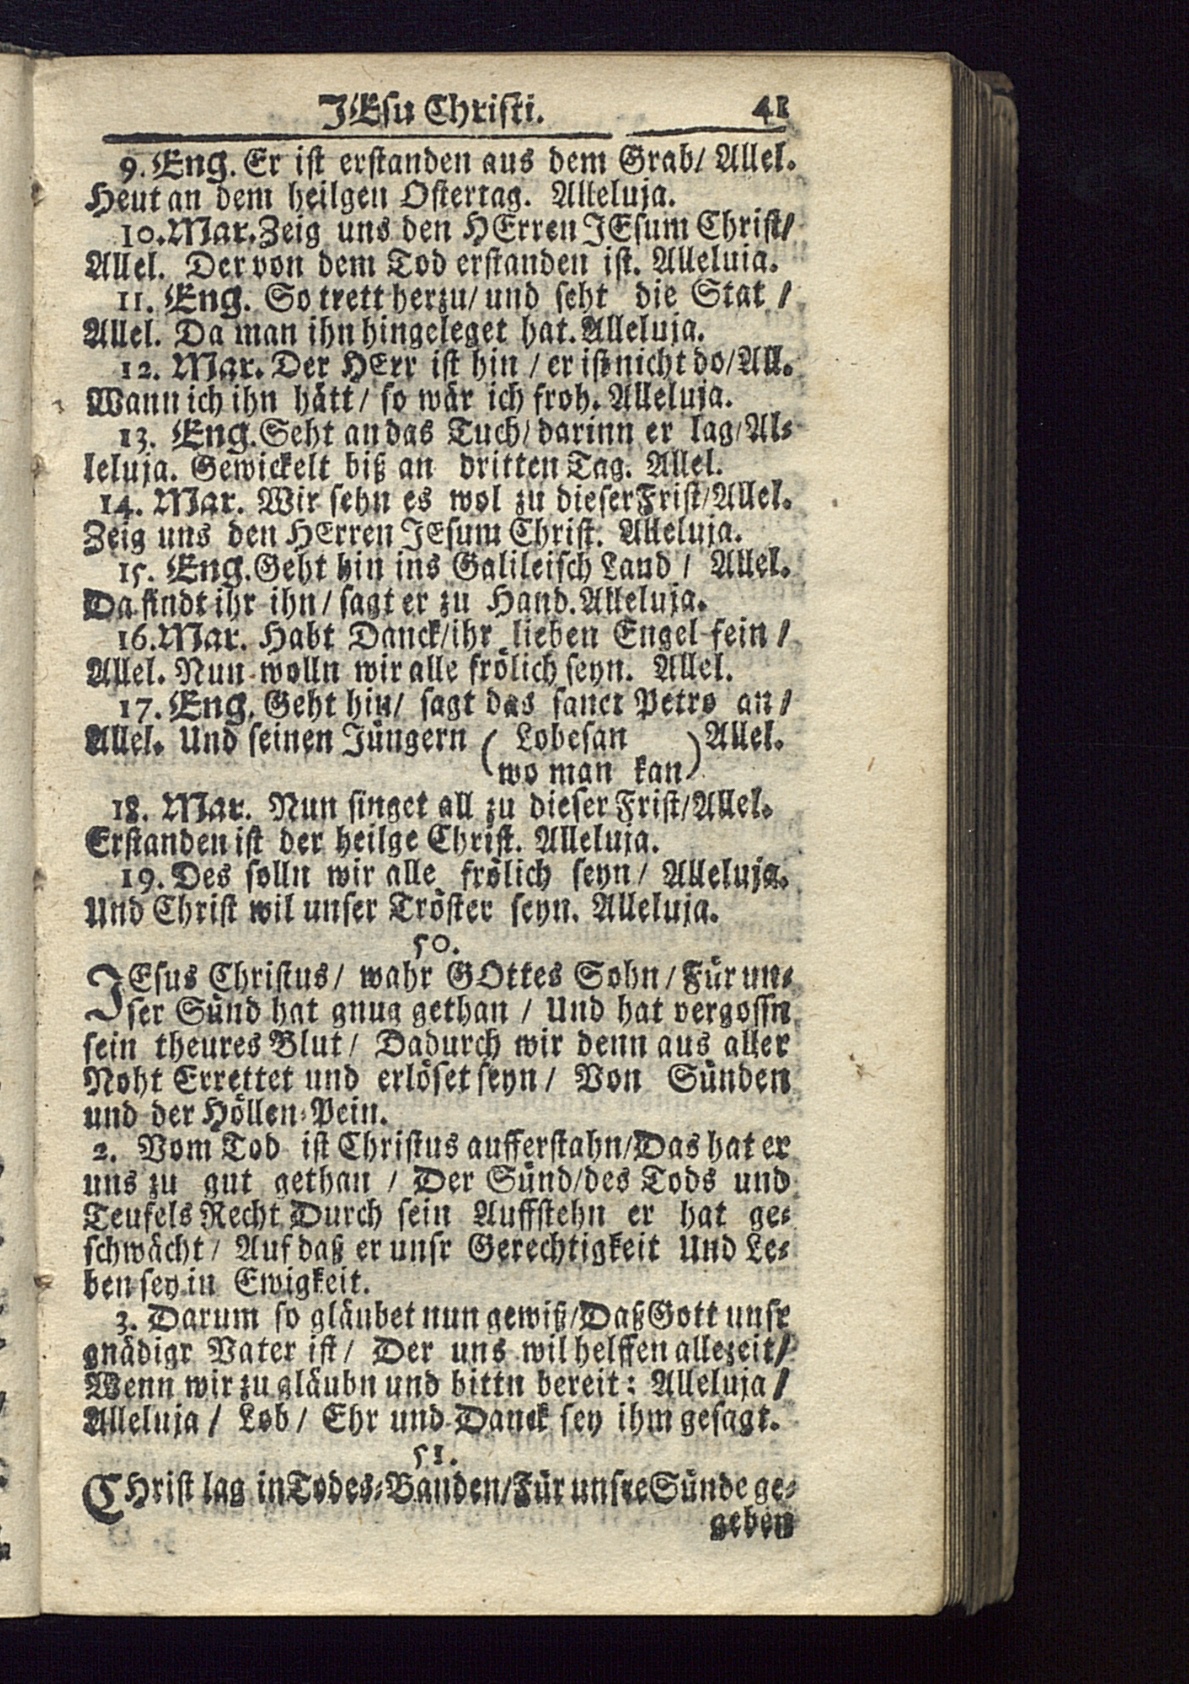 JEsu Christi. 41
9. Eng. Er ist erstanden aus dem Grab/ Allel.
Heut an dem heilgen Ostertag. Alleluja.
10. Mar. Zeig uns den HErren JEsum Christ/
Allel. Der von dem Tod erstanden ist. Alleluia.
11. Eng. So trett herzu/ und seht die Stat /
Allel. Da man ihn hingeleget hat. Alleluja.
12. Mar. Der HErr ist hin / er ist nicht do/ All.
Wann ich ihn hätt / so wär ich froh. Alleluja.
13. Eng. Seht an das Tuch/ darinn er lag/ Al-
leluja. Gewickelt biß an dritten Tag. Allel.
14. Mar. Wir sehn es wol zu dieser Frist/ Allel.
Zeig uns den HErren JEsum Christ. Alleluja.
15. Eng. Geht hin ins Galileisch Land / Allel.
Da findt ihr ihn/ sagt er zu Hand. Alleluja.
16. Mar. Habt Danck/ ihr lieben Engel fein /
Allel. Nun wolln wir alle frölich seyn. Allel.
17. Eng. Geht hin/ sagt das sanct Petro an /
Allel. Und seinen Jüngern ( Lobesan ) Allel.
wo man kan
18. Mar. Nun singet all zu dieser Frist/ Allel.
Erstanden ist der heilge Christ. Alleluja.
19. Des solln wir alle frölich seyn/ Alleluja.
Und Christ wil unser Tröster seyn. Alleluja.
50.
JEsus Christus/ wahr GOttes Sohn/ Für un-
ser Sünd hat gnug gethan / Und hat vergossn
sein theures Blut/ Dadurch wir denn aus aller
Noht Errettet und erlöset seyn/ Von Sünden
und der Höllen-Pein.
2. Vom Tod ist Christus aufferstahn/ Das hat er
uns zu gut gethan / Der Sünd/ des Tods und
Teufels Recht Durch sein Auffstehn er hat ge-
schwächt/ Auf daß er unsr Gerechtigkeit Und Le-
ben sey in Ewigkeit.
3. Darum so gläubet nun gewiß/ Daß Gott unsr
gnädigr Vater ist/ Der uns wil helffen allezeit/
Wenn wir zu gläubn und bittn bereit: Alleluja/
Alleluja/ Lob/ Ehr und Danck sey ihm gesagt.
51.
CHrist lag in Todes-Banden/ Für unsre Sünde ge-
geben